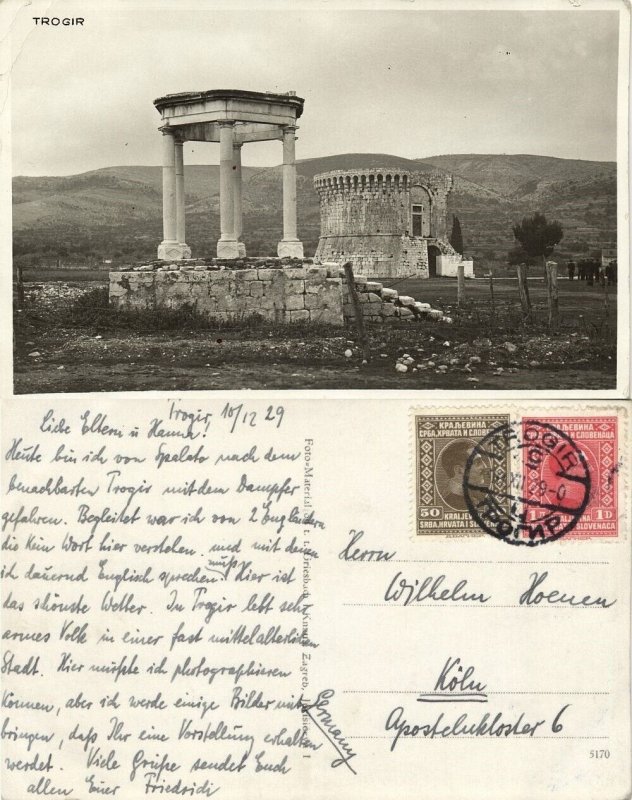 TROGIR
Trogir, 10/12 29
Liebe Eltern u Hanna!
Heute bin ich von Spalato nach dem
benachbarten Trogir mit dem Dampfer
gefahren. Begleitet war ich von 2 Engländern
die kein Wort hier verstehen. und mit denen
ich dauernd Englisch sprechen muß. Hier ist
das schönste Wetter. In Trogir lebt sehr
armes Volk in einer fast mittelalterlichen
Stadt. Hier müßte ich photographieren
können, aber ich werde einige Bilder mit
bringen, daß Ihr eine Vorstellung erhalten
werdet. Viele Grüße sendet Euch
allen Euer Friedrich
Foto-Material
Zagreb,
КРАЉЕВИНА
СРБА, ХРВАТА И СЛОВЕНАЦА
50
KRALJEVINA
SRBA, HRVATA I SLOVENACA
КРАЉЕВИНА
СРБА, ХРВАТА И СЛОВЕНАЦА
1D
TROGIR
ТРОГИР
Herrn
Wilhelm Hoenen
Köln
Apostelnkloster 6
Germany
5170